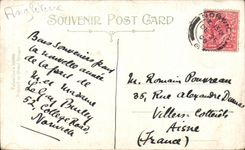 Angleterre
SOUVENIR POST CARD
Bons Souvenirs pour
la nouvelle année
de la part de
Mr et Madame
Le Guy Burley
52, College Road,
Norwich
M. Romain Pouvreau
35, Rue Alexandre Dumas
Villers-Cotterêts
Aisne
(France)